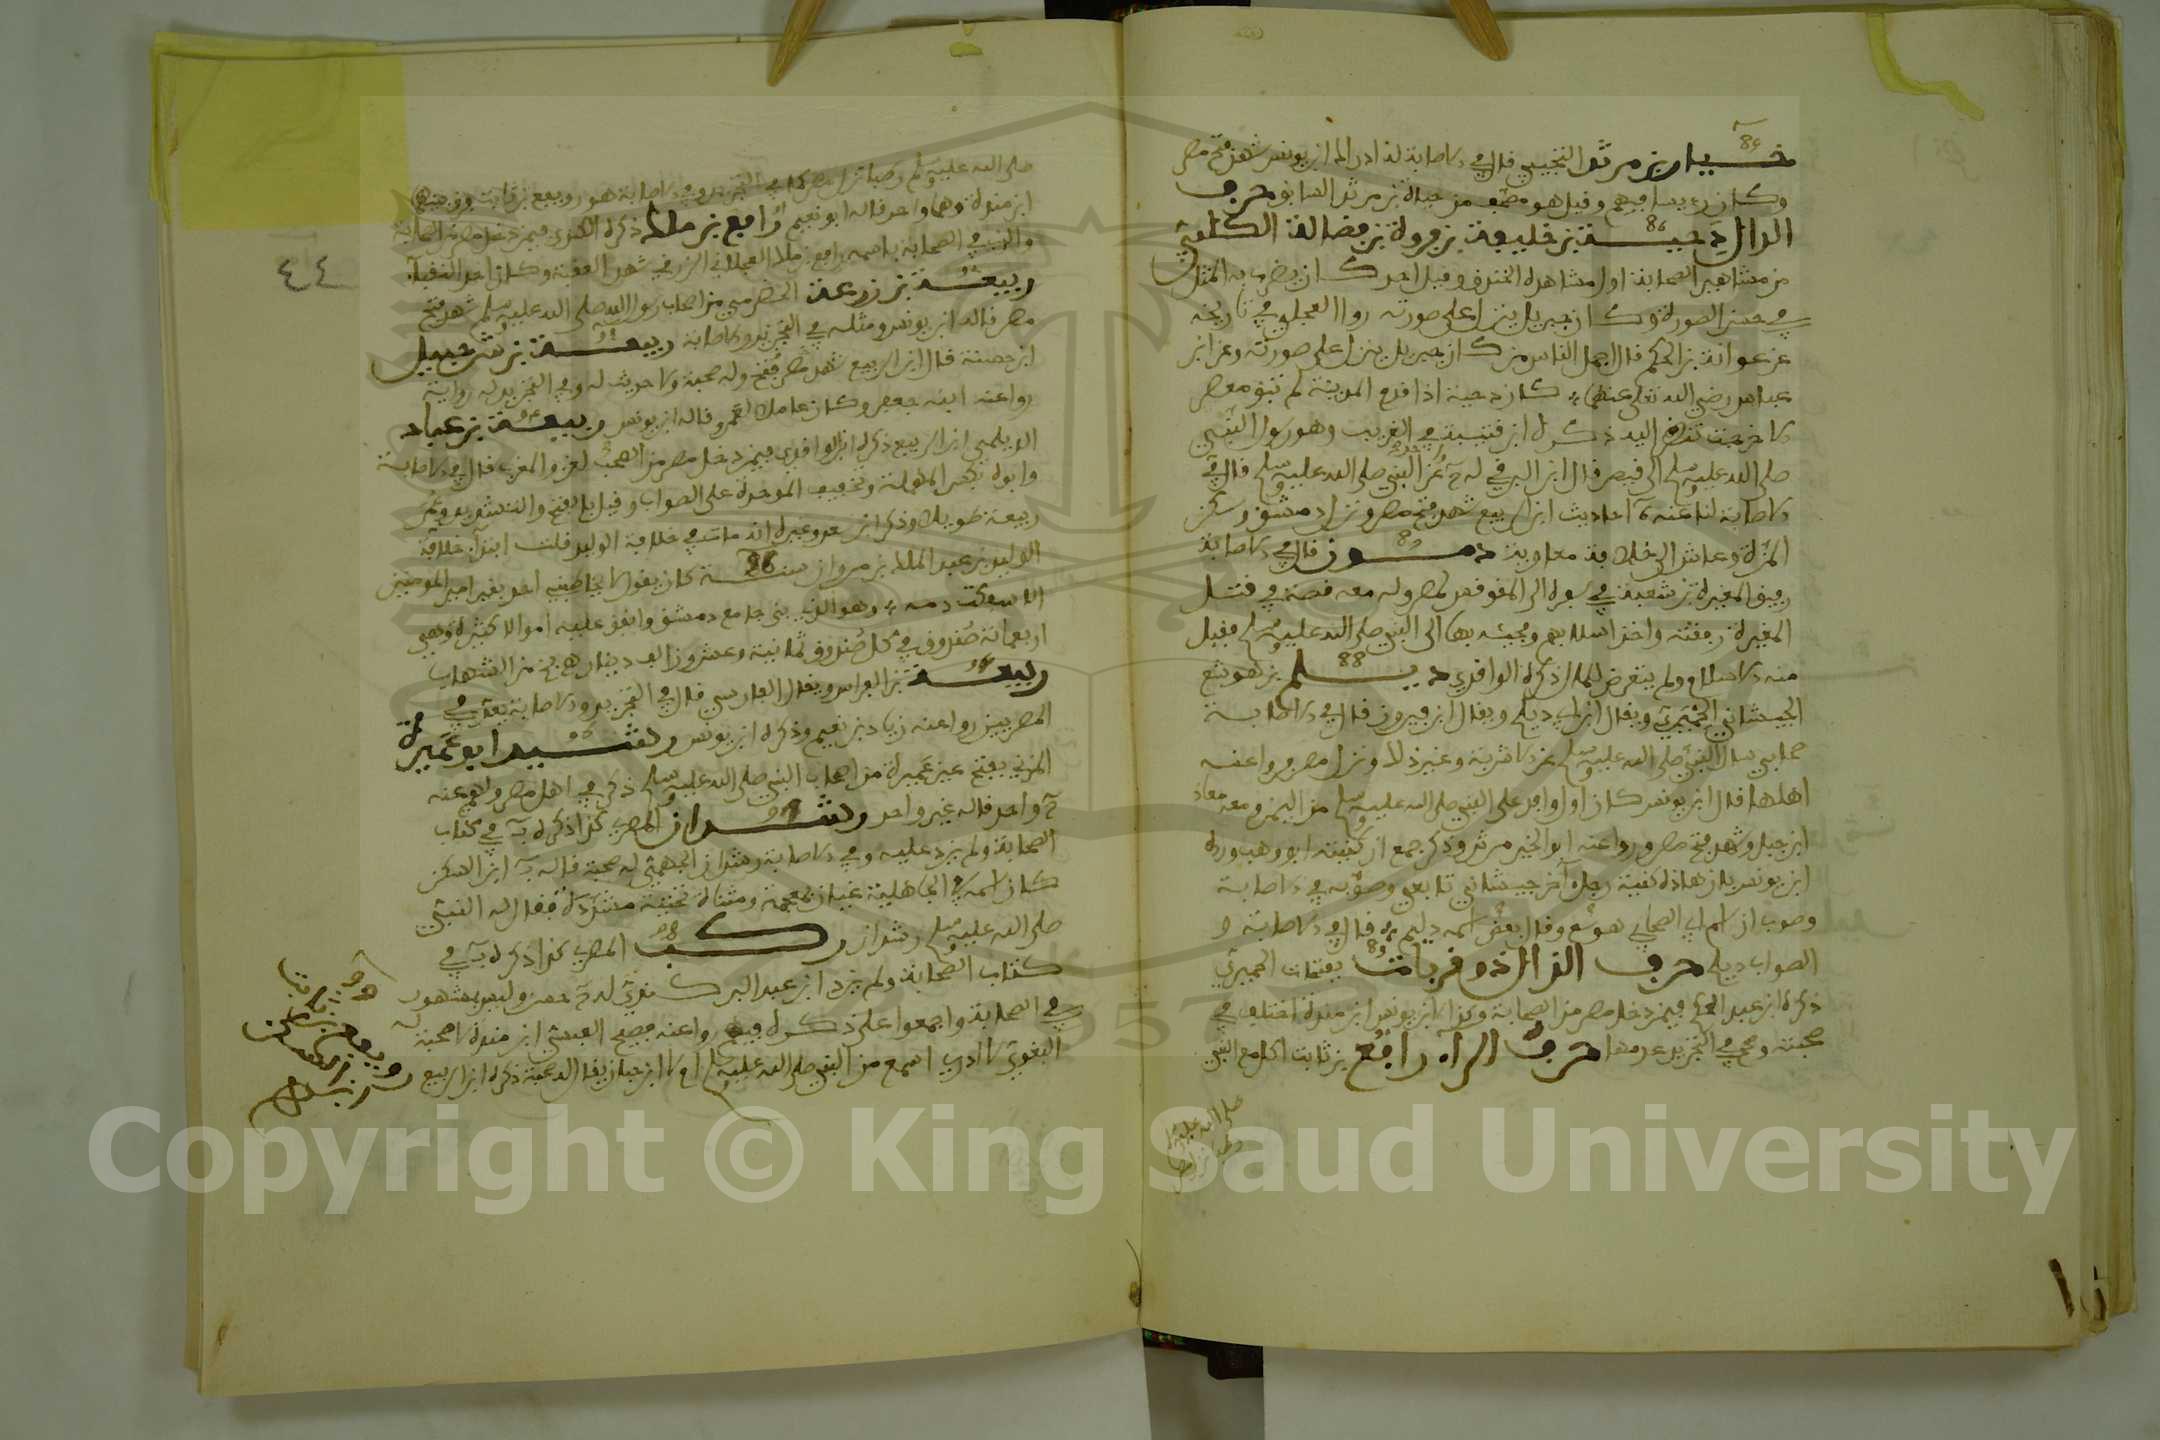 خيار بن مرثد التجيبي قال في الاصابة له ادراك ابن يونس شهد فتح مصر
وكان رييسا فيهم وقيل هو مصحف من حياة بن مرثد السابق حرف
الدال دحية بن خليفة بن فروة بن فضالة الكلبي
من مشاهير الصحابة اول مشاهده الخندق وقيل احد كان يضرب به المثل
في حسن الصورة وكان جبريل ينزل على صورته رواه العجلي في تاريخه
عن عوانة بن الحكم قال اجمل الناس من كان جبريل ينزل على صورته وعن ابن
عباس رضي الله تعلى عنهما كان دحية اذا قدم المدينة لم تبق معصر
الا خرجت تنظر اليه ذكره ابن قتيبة في الغريب وهو رسول النبي
صلى الله عليه وسلم الى قيصر قال ابن البرقي له عن النبي صلى الله عليه وسلم قال في
الاصابة لنا عنه احاديث ابن الربيع شهد فتح مصر ونزل دمشق وسكن
المزة وعاش الى خلافة معاوية دمون قال في الاصابة
رفيق المغيرة بن شعبة في سفره الى المقوقس لمصر وله معه قصة في قتل
المغيرة رفقته واخذ اسلابهم ومجيئه بها الى النبي صلى الله عليه وسلم فقبل
منه الاسلام ولم يتعرض للمال ذكره الواقدي ديلم بن هوشع
الجيشاني الحميري ويقال ابن ابي ديلم ويقال ابن فيروز قال في الاصابة
صحابي سال النبي صلى الله عليه وسلم عن الاشربة وغير ذلك ونزل مصر وروا عنه
اهلها قال ابن يونس كان اول وافد على النبي صلى الله عليه وسلم من اليمن ومعه معاذ
ابن جبل وشهد فتح مصر وروا عنه ابو الخير مرثد وذكر جمع ان كنيته ابو وهب ورده
ابن يونس بان هاذه كنية رجل اخر جيشاني تابعي وصوبه في الاصابة
وصوب ان اسم ابي الصحابي هوشع وقال بعض اسمه ديلم قال في الاصابة و
الصواب ديلم حرف الذال ذو قربات بفتحات الحميري
ذكره ابن عبد الحكم فيمن دخل مصر من الصحابة وكذا ابن يونس ابن مندة اختلف في
صحبته وصحح في التجريد عدمها حرف الراء رافع بن ثابت اكل مع النبي
صلى الله عليه وسلم
صلى الله عليه وسلم رطبا نزل مصر كما في التجريد وفي الاصابة هو رويفع بن ثابت فرق بينهما
ابن مندة وهما واحد قاله ابو نعيم رافع بن مالك ذكره الكندي فيمن دخل مصر من الصحابة
والذي في الصحابة باسمه رافع بن مالك العجلاني الزرقي شهد العقبة وكان احد النقبا
ربيعة بن زرعة الحضرمي من اصحاب رسول الله صلى الله عليه وسلم شهد فتح
مصر قاله ابن يونس ومثله في التجريد والاصابة ربيعة بن شرحبيل
ابن حسنة قال ابن الربيع شهد مصر فتح وله صحبة ولا حديث له وفي التجريد له رواية
روا عنه ابنه جعفر وكان عاملا لعمرو قاله ابن يونس ربيعة بن عباد
الديلمي ابن الربيع ذكره الواقدي فيمن دخل مصر من الصحب لغزو المغرب قال في الاصابة
وابوه بكسر المهملة وتخفيف الموحدة على الصواب وقيل بالفتح والتشديد وعمر
ربيعة طويلا وذكر ابن سعد وغيره انه مات في خلافة الوليد قلت ابتدأ خلافة
الوليد بن عبد الملك بن مروان سنة 86 كان يقول لا يخاطبني احد بغير امير المومنين
الا سفكت دمه وهو الذي بنى جامع دمشق وانفق عليه اموالا كثيرة وهي
اربعمائة صندوق في كل صندوق ثمانية وعشرون الف دينار
ربيعة بن الفراس ويقال الفارسي قال في التجريد والاصابة يعد في
المصريين روا عنه زياد بن نعيم وذكره ابن يونس رشيد ابو عميرة
المزني بفتح عين عميرة من اصحاب النبي صلى الله عليه وسلم ذكر في اهل مصر ولهم عنه
واحد قاله غير واحد رشدان المصري كذا ذكره في كتاب
الصحابة ولم يزد عليه وفي الاصابة رشدان الجهمي له صحبة قاله ابن السكن
كان اسمه في الجاهلية غيان بمعجمة ومثناة تحتية مشددة فقال له النبي
صلى الله عليه وسلم رشدان ركب المصري كذا ذكره في
كتاب الصحابة ولم يزد ابن عبد البر كندي له حسن وليس بمشهور
في الصحابة واجمعوا على ذكره فيهم روا عنه نصيح العبسي ابن مندة لا صحبة له
البغوي لا ادري اسمع من النبي صلى الله عليه وسلم ام لا ابن حبان يقال له صحبة ذكره ابن الربيع
٤٤
Copyright © King Saud University
1957